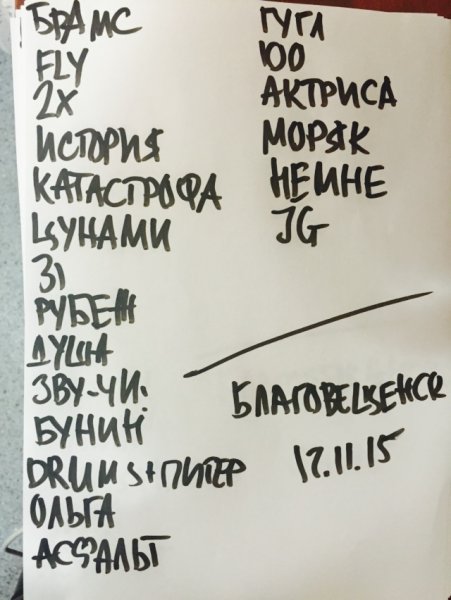 БРАМС
FLY
2Х
ИСТОРИЯ
КАТАСТРОФА
ЦУНАМИ
31
РУБЕЖ
ДУША
ЗВУ-ЧИ!
БУНИН
DRUMS+ПИТЕР
ОЛЬГА
АСФАЛЬТ
ГУГЛ
100
АКТРИСА
МОРЯК
НЕИНЕ
JG
БЛАГОВЕЩЕНСК
12.11.15